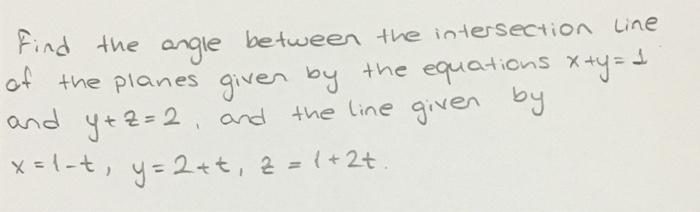 Find the angle between the intersection line
of the planes given by the equations x+y=1
and y+z=2, and the line given by
x=1-t, y=2+t, z=1+2t.